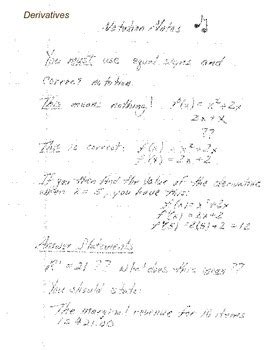 Derivatives
Notation Notes
You must use equal signs and
correct notation
This means nothing! f(x) = x²+2x
2x+x
??
This is correct: f(x) = x²+2x
f'(x) = 2x+2
If you then find the value of the derivative
when x = 5, you have this:
f(x) = x²+2x
f'(x) = 2x+2
f'(5) = 2(5)+2 = 12
Answer Statements
= 21 ?? What does this mean ??
You should state:
The marginal revenue for 16 items
is $21.00